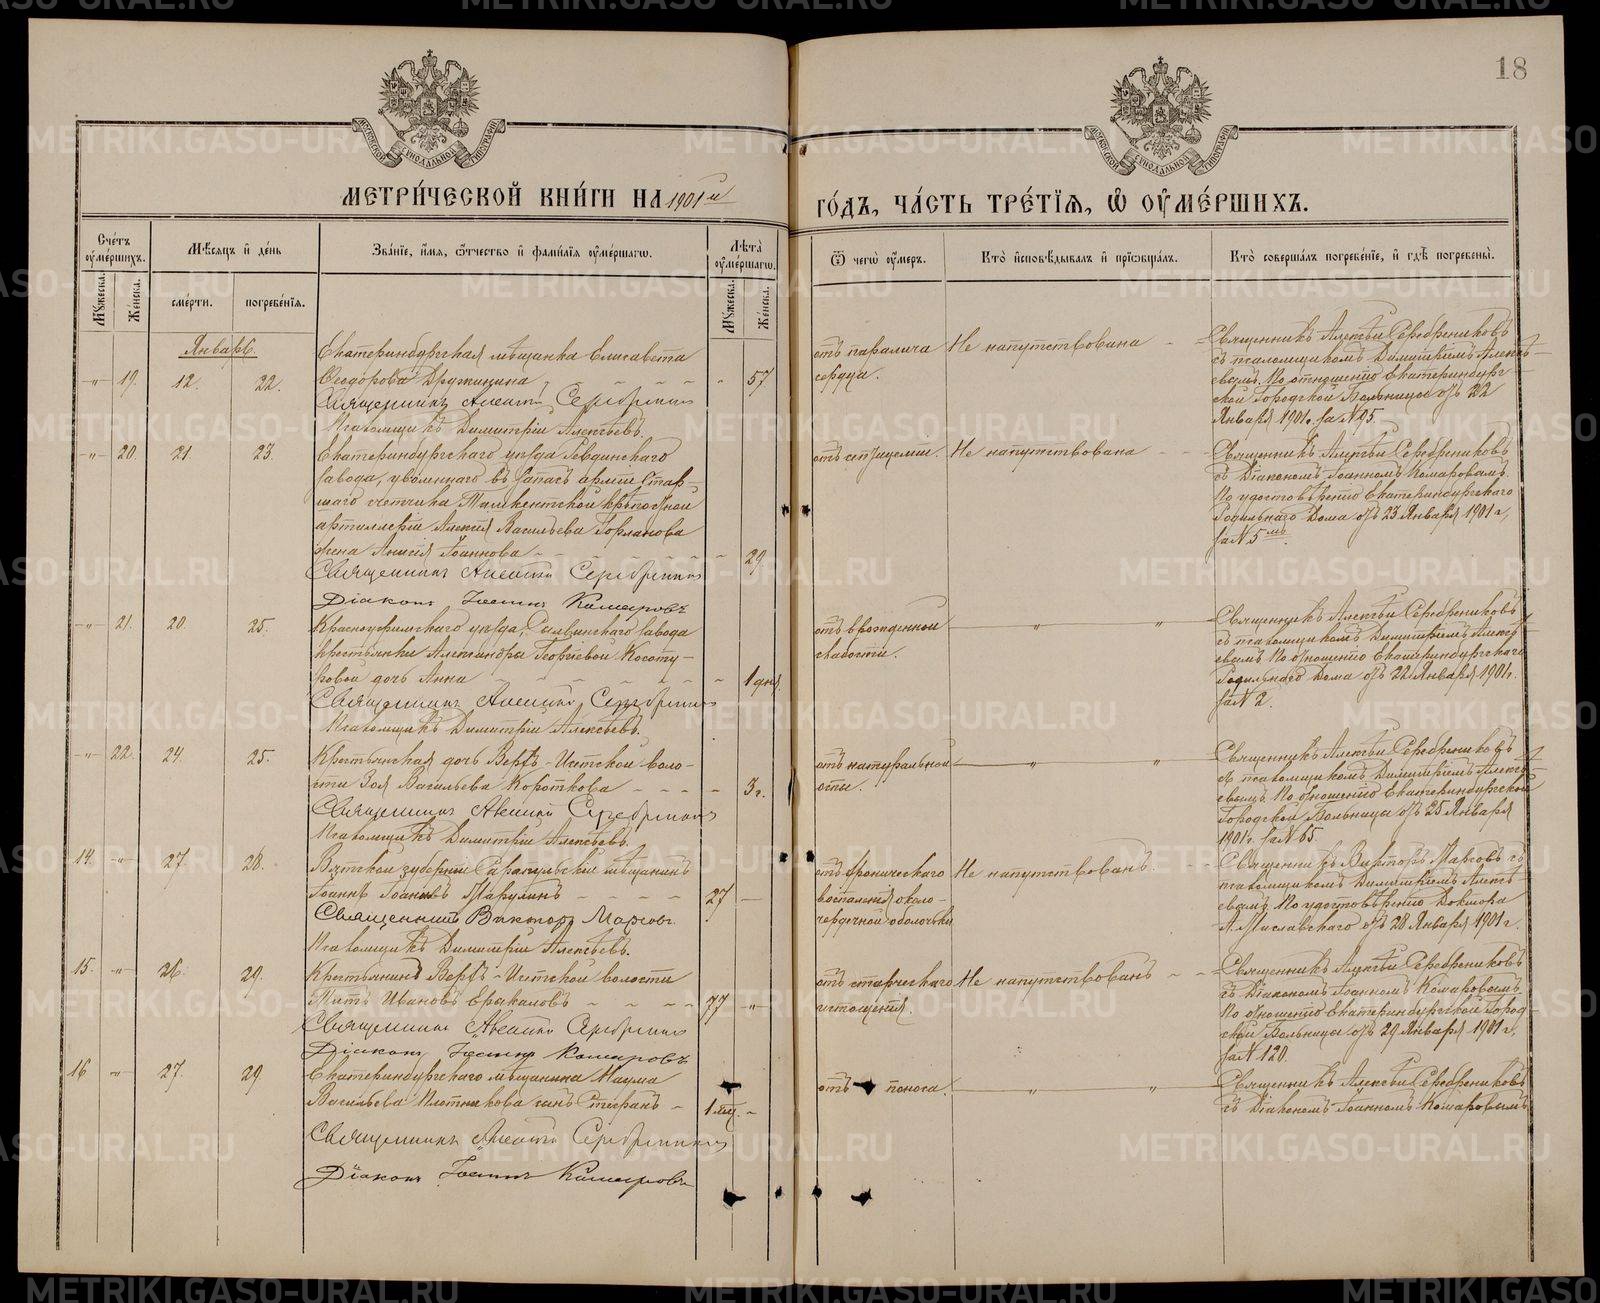 18
МЕТРИ́ЧЕСКОЙ КНИ́ГИ НА 1901й ГО́ДЪ, ЧА́СТЬ ТРЕ́ТІѦ, Ѡ҆ ОУ҆МЕ́РШИХЪ.
Сче́тъ оу҆ме́ршихъ.
Мꙋ́жеска.
Же́нска.
Мѣ́сѧцъ и҆ де́нь
сме́рти.
погребе́нїѧ.
Зва́нїе, и҆́мѧ, ѻ҆́тчество и҆ фами́лїѧ оу҆ме́ршагѡ.
Лѣ́та оу҆ме́ршагѡ.
Мꙋ́жеска.
Же́нска.
Ѿ чегѡ̀ оу҆́меръ.
Кто̀ и҆сповѣ́дывалъ и҆ прїѡбща́лъ.
Кто̀ соверша́лъ погребе́нїе, и҆ гдѣ̀ погребены̀.
Январь.
-"- 19. 12. 22.
Екатеринбургская мѣщанка Елисавета
Ѳеодорова Дружинина 57
Священникъ Алексѣй Серебренниковъ
Псаломщикъ Димитрій Алексѣевъ.
отъ паралича
сердца.
Не напутствована
Священникъ Алексѣй Серебрениковъ
съ псаломщикомъ Димитріемъ Алексѣ-
евымъ. По отношенію Екатеринбург-
ской Городской Больницы отъ 22
Января 1901г. за № 95.
-"- 20. 21 23.
Екатеринбургскаго уѣзда Ревдинскаго
завода, уволеннаго въ запасъ арміи Стар-
шаго Ташкентской крѣпостной
артиллеріи Алексѣя Васильева Горланова
жена Анисія Іоаннова 29.
Священникъ Алексѣй Серебренниковъ
Діаконъ Іоаннъ Комаровъ
отъ септицеміи.
Не напутствована
Священникъ Алексѣй Серебрениковъ
съ Діакономъ Іоанномъ Комаровымъ.
По удостовѣренію Екатеринбургскаго
Родильнаго Дома отъ 23 Января 1901г,
за № 5мъ.
-"- 21. 20. 25.
Красноуфимскаго уѣзда, Сылвинскаго завода
крестьянки Александры Георгіевой
дочь Анна 1 дня
Священникъ Алексѣй Серебренниковъ
Псаломщикъ Димитрій Алексѣевъ.
отъ врожденной
слабости.
" "
Священникъ Алексѣй Серебрениковъ
съ псаломщикомъ Димитріемъ Алексѣ-
евымъ По отношенію Екатеринбургскаго
Родильнаго Дома отъ 22 Января 1901г.
за № 2.
-"- 22. 24. 25.
Крестьянская дочь Верхъ-Исетской воло-
сти Зоя Васильева Короткова 3 г.
Священникъ Алексѣй Серебренниковъ
Псаломщикъ Димитрій Алексѣевъ.
отъ натуральной
оспы.
" "
Священникъ Алексѣй Серебрениковъ
съ псаломщикомъ Димитріемъ Алексѣ-
евымъ. По отношенію Екатеринбургской
Городской Больницы отъ 25 Января
1901г. за № 65
14. -"- 27. 28.
Вятской губерніи Сарапульскій мѣщанинъ
Іоаннъ Іоанновъ 27
Священникъ Викторъ Марсовъ.
Псаломщикъ Димитрій Алексѣевъ.
отъ хроническаго
воспаленія около-
сердечной оболочки
Не напутствованъ.
Священникъ Викторъ Марсовъ съ
псаломщикомъ Димитріемъ Алексѣ-
евымъ. По удостовѣренію Доктора
А. Миславскаго отъ 28 Января 1901г.
15. -"- 26. 29.
Крестьянинъ Верхъ-Исетской волости
Титъ Ивановъ 77 "
Священникъ Алексѣй Серебренниковъ
Діаконъ Іоаннъ Комаровъ
отъ старческаго
истощенія.
Не напутствованъ
Священникъ Алексѣй Серебрениковъ
съ Діакономъ Іоанномъ Комаровымъ.
По отношенію Екатеринбургской Город-
ской Больницы отъ 29 Января 1901г,
за № 120.
16 -"- 27. 29.
Екатеринбургскаго мѣщанина Наума
Васильева Плотникова сынъ Стефанъ 1 мц. -
Священникъ Алексѣй Серебренниковъ
Діаконъ Іоаннъ Комаровъ
отъ поноса.
" "
Священникъ Алексѣй Серебрениковъ
съ Діакономъ Іоанномъ Комаровымъ
METRIKI.GASO-URAL.RU